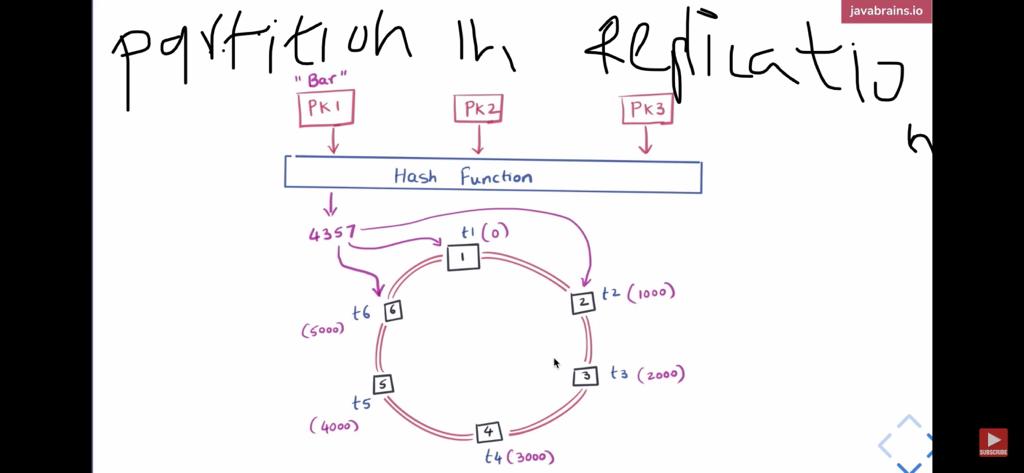 javabrains.io
partition in Replicatio
n
"Bar"
PK1 PK2 PK3
Hash Function
4357
t1 (0)
1
6
t6
(5000)
2
t2 (1000)
5
t5
(4000)
3
t3 (2000)
4
t4 (3000)
SUBSCRIBE